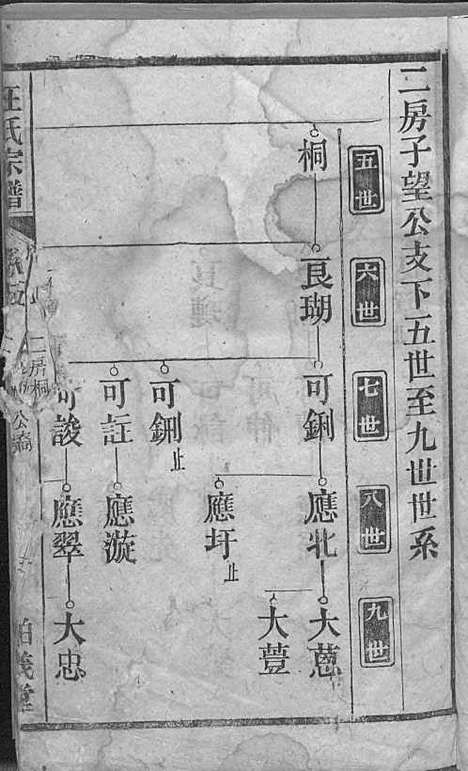 二房子望公支下五世至九世世系
五世
六世
七世
八世
九世
桐
良瑚
可鉶
應北
大蒽
大荳
應圩
止
可鉶
止
可註
應漩
可誜
應翠
大忠
汪氏宗譜
二房桐
公喬